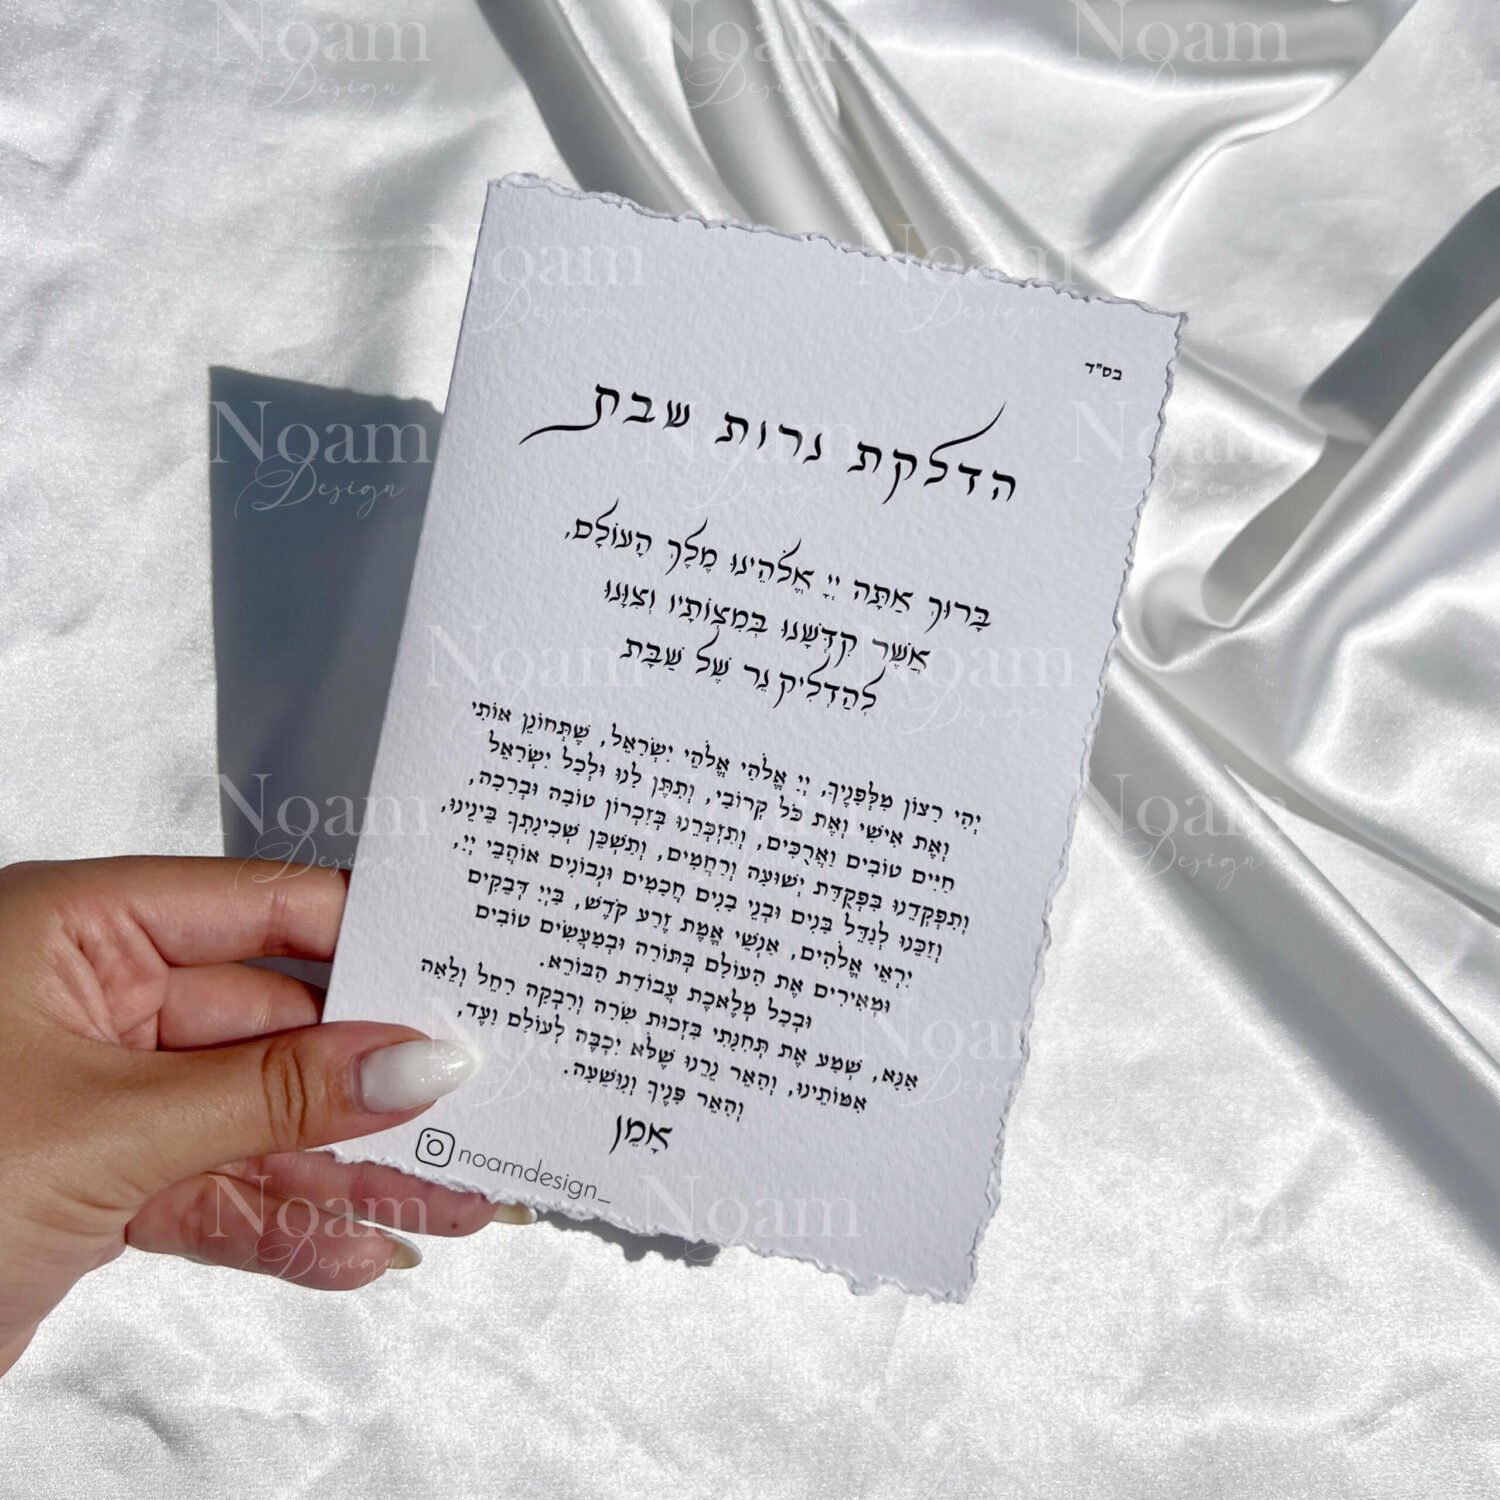 בס"ד
הדלקת נרות שבת
בָּרוּךְ אַתָּה יְיָ אֱלֹהֵינוּ מֶלֶךְ הָעוֹלָם,
אֲשֶׁר קִדְּשָׁנוּ בְּמִצְוֹתָיו וְצִוָּנוּ
לְהַדְלִיק נֵר שֶׁל שַׁבָּת
יְהִי רָצוֹן מִלְּפָנֶיךָ, יְיָ אֱלֹהַי אֱלֹהֵי יִשְׂרָאֵל, שֶׁתְּחוֹנֵן אוֹתִי
וְאֶת אִישִׁי וְאֶת כֹּל קְרוֹבַי, וְתִתֵּן לָנוּ וּלְכָל יִשְׂרָאֵל
חַיִּים טוֹבִים וַאֲרֻכִּים, וְתִזְכְּרֵנוּ בְּזִכְרוֹן טוֹבָה וּבְרָכָה,
וְתִפְקְדֵנוּ בִּפְקֻדַּת יְשׁוּעָה וְרַחֲמִים, וְתַשְׁכֵּן שְׁכִינָתְךָ בֵּינֵינוּ,
וְזַכֵּנוּ לְגַדֵּל בָּנִים וּבְנֵי בָנִים חֲכָמִים וּנְבוֹנִים אוֹהֲבֵי יְיָ,
יִרְאֵי אֱלֹהִים, אַנְשֵׁי אֱמֶת זֶרַע קֹדֶשׁ, בַּיְיָ דְּבֵקִים
וּמְאִירִים אֶת הָעוֹלָם בְּתּוֹרָה וּבְמַעֲשִׂים טוֹבִים
וּבְכָל מְלֶאכֶת עֲבוֹדַת הַבּוֹרֵא.
אָנָּא, שְׁמַע אֶת תְּחִנָּתִי בִּזְכוּת שָׂרָה וְרִבְקָה רָחֵל וְלֵאָה
אִמּוֹתֵינוּ, וְהָאֵר נֵרֵנוּ שֶׁלֹּא יִכְבֶּה לְעוֹלָם וָעֶד,
וְהָאֵר פָּנֶיךָ וְנִוָּשֵׁעָה.
אָמֵן
noamdesign_
Noam Design